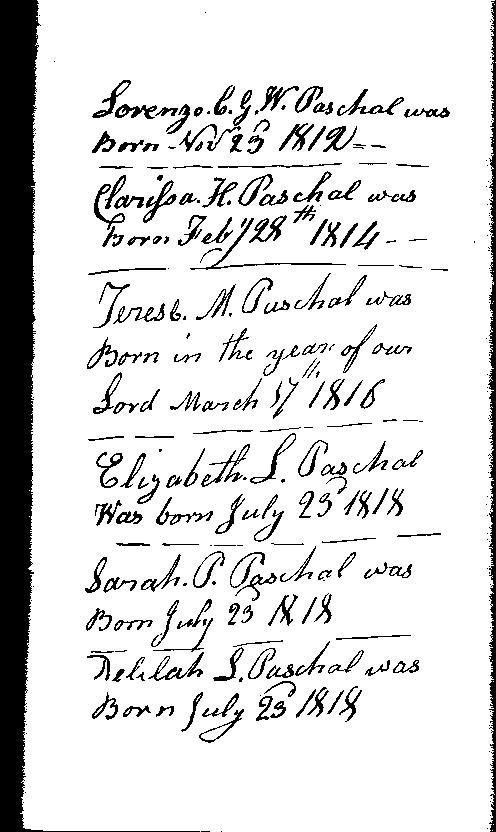 Lorenzo. C. G. W. Paschal was
Born Nov 23 1812
Clarissa. H. Paschal was
Born Feby 28th 1814
Teresc. M. Paschal was
Born in the year of our
Lord March 17th 1816
Elizabeth. L. Paschal
Was born July 23 1818
Sarah. P. Paschal was
Born July 23 1818
Delilah S. Paschal was
Born July 23 1818